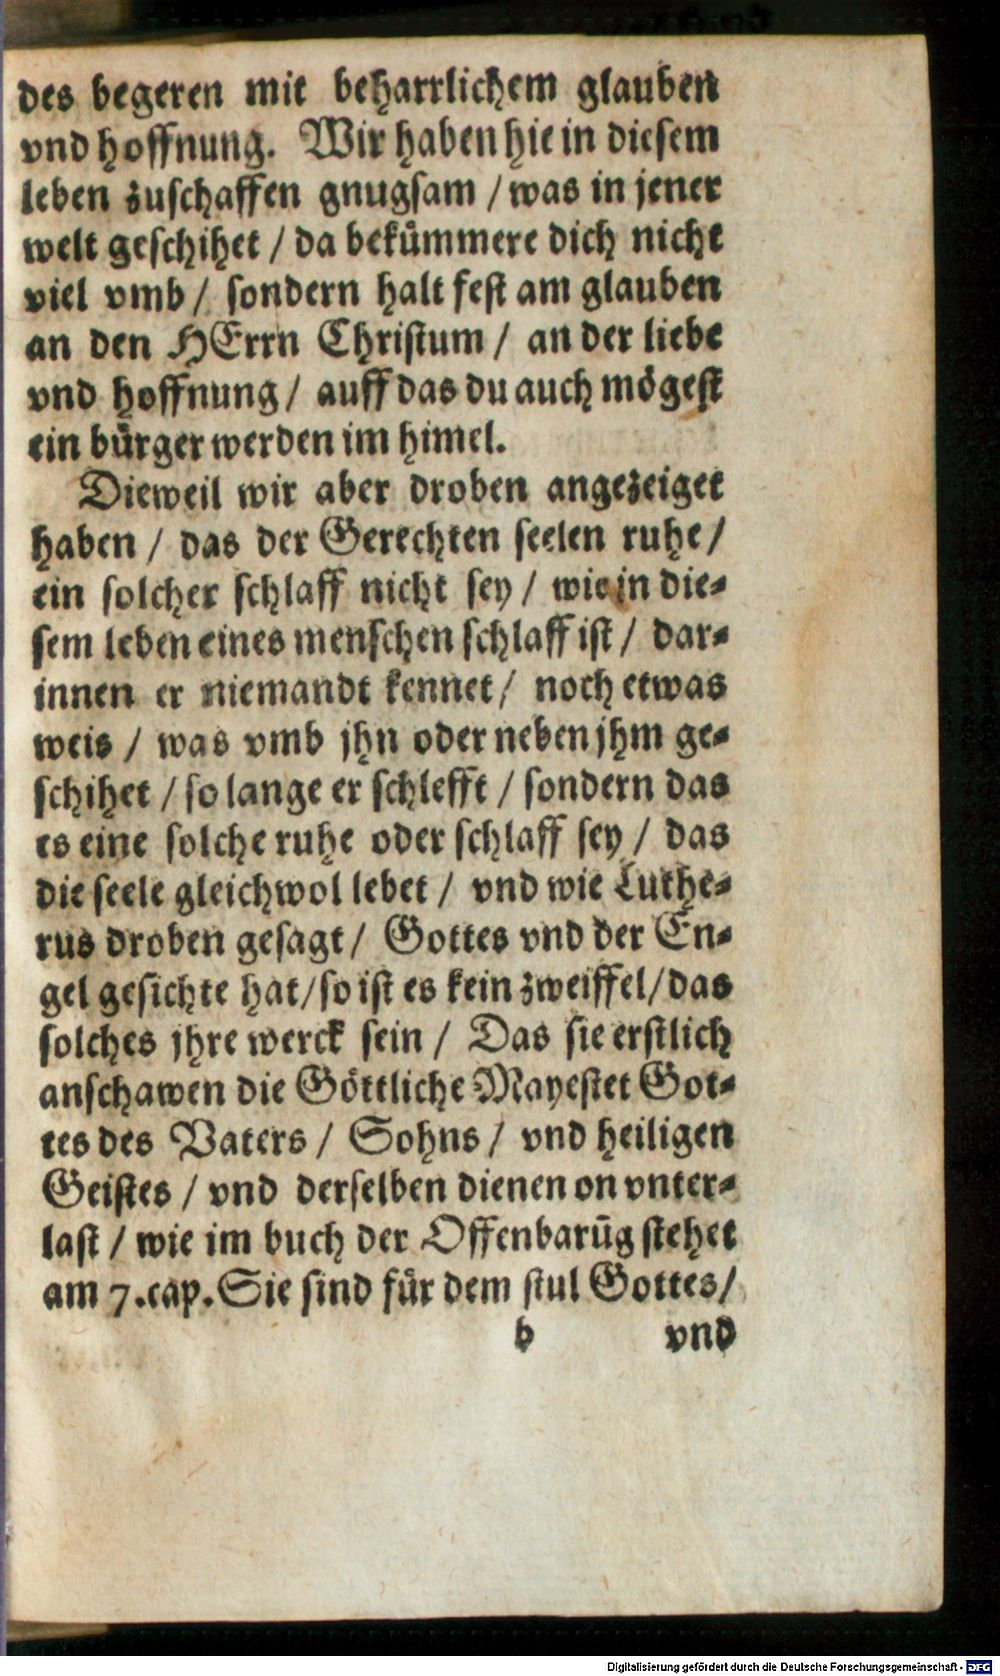 des begeren mit beharrlichem glauben
vnd hoffnung. Wir haben hie in diesem
leben zuschaffen gnugsam / was in jener
welt geschihet / da bekümmere dich nicht
viel vmb / sondern halt fest am glauben
an den HErrn Christum / an der liebe
vnd hoffnung / auff das du auch mögest
ein bürger werden im himel.
Dieweil wir aber droben angezeiget
haben / das der Gerechten seelen ruhe /
ein solcher schlaff nicht sey / wie in die-
sem leben eines menschen schlaff ist / dar-
innen er niemandt kennet / noch etwas
weis / was vmb jhn oder neben jhm ge-
schihet / so lange er schlefft / sondern das
es eine solche ruhe oder schlaff sey / das
die seele gleichwol lebet / vnd wie Luthe-
rus droben gesagt / Gottes vnd der En-
gel gesichte hat / so ist es kein zweiffel / das
solches jhre werck sein / Das sie erstlich
anschawen die Göttliche Mayestet Got-
tes des Vaters / Sohns / vnd heiligen
Geistes / vnd derselben dienen on vnter-
last / wie im buch der Offenbarūg stehet
am 7. cap. Sie sind für dem stul Gottes /
b vnd
Digitalisierung gefördert durch die Deutsche Forschungsgemeinschaft - DFG